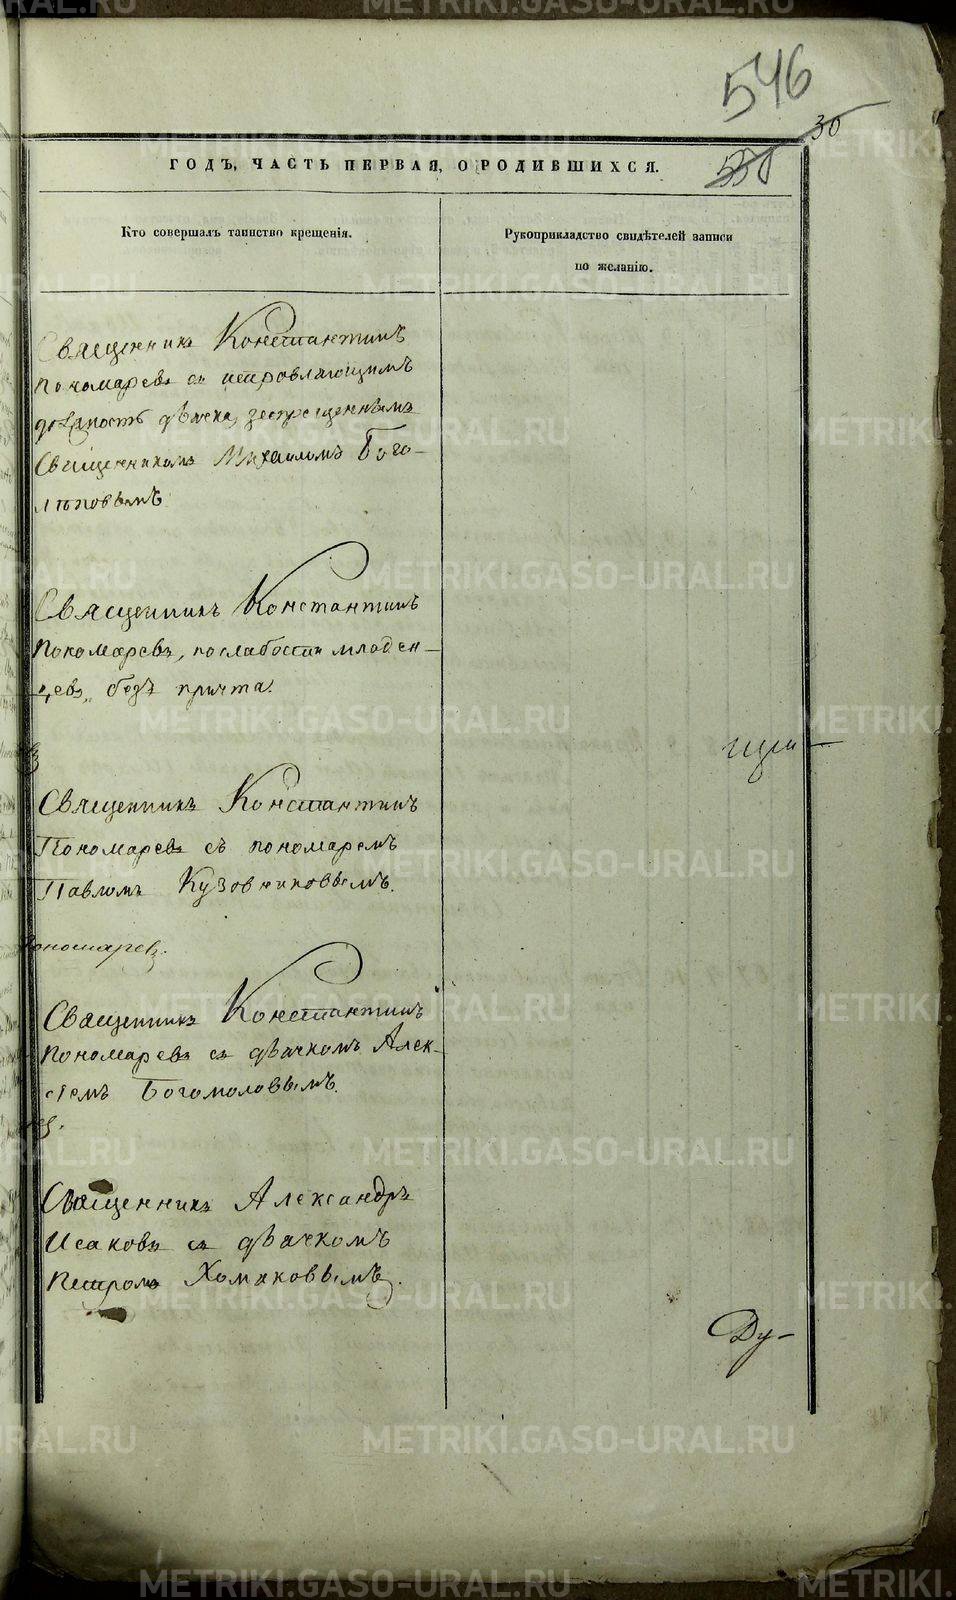 546
30
550
ГОДЪ, ЧАСТЬ ПЕРВАЯ, О РОДИВШИХСЯ.
Кто совершалъ таинство крещенія.
Рукоприкладство свидѣтелей записи
по желанію.
Священникъ Константинъ
Пономаревъ съ исправляющимъ
должность дьячка, запрещеннымъ
Священникомъ Михаиломъ Бого-
лѣповымъ
Священникъ Константинъ
Пономаревъ, по слабости младен-
цевъ, безъ причта.
Священникъ Константинъ
Пономаревъ съ пономаремъ
Павломъ Кузовниковымъ.
Пономаревъ.
Священникъ Константинъ
Пономаревъ съ дьячкомъ Алек-
сѣемъ Богомоловымъ.
Священникъ Александръ
Исаковъ съ дьячкомъ
Петромъ Хомяковымъ.
Ду-
METRIKI.GASO-URAL.RU